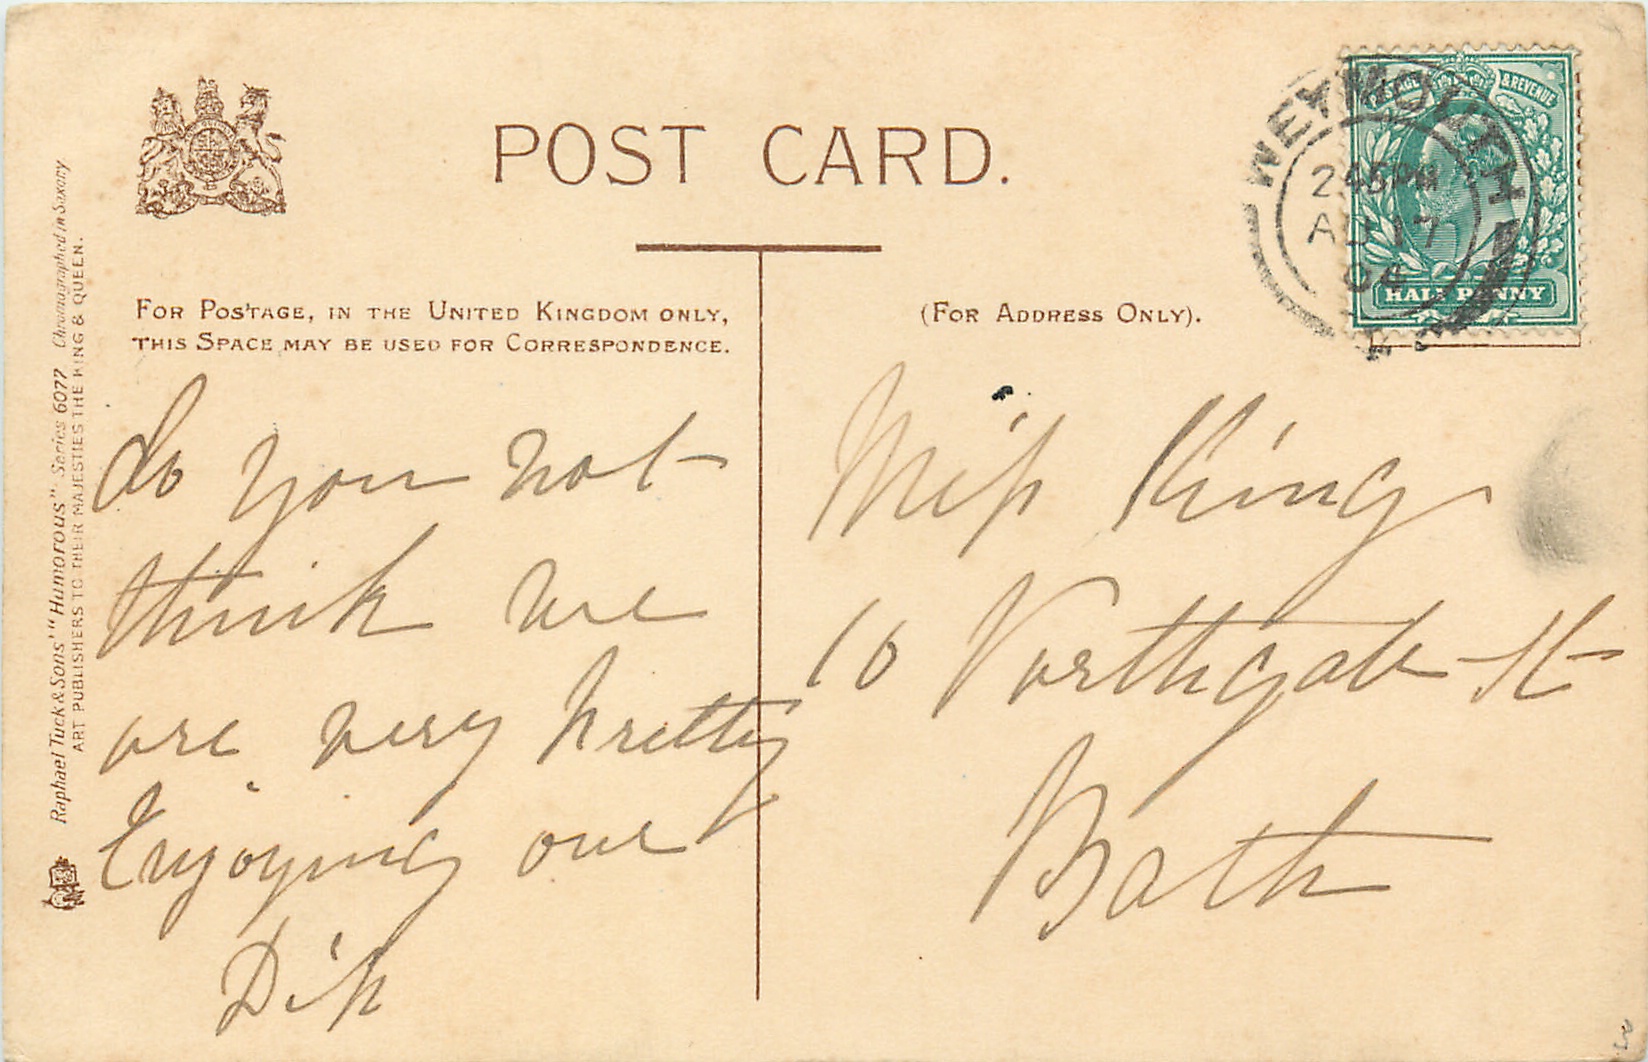 POST CARD.
FOR POSTAGE, IN THE UNITED KINGDOM ONLY,
THIS SPACE MAY BE USED FOR CORRESPONDENCE.
(FOR ADDRESS ONLY).
POSTAGE & REVENUE
HALF PENNY
WEYMOUTH
2 45 PM
AU 17
Raphael Tuck & Sons' "Humorous" Series 6077 Chromographed in Saxony
ART PUBLISHERS TO THEIR MAJESTIES THE KING & QUEEN.
do you not
think we
are very pretty
Enjoying our
Dip
Miss King
10 Northgate St
Bath